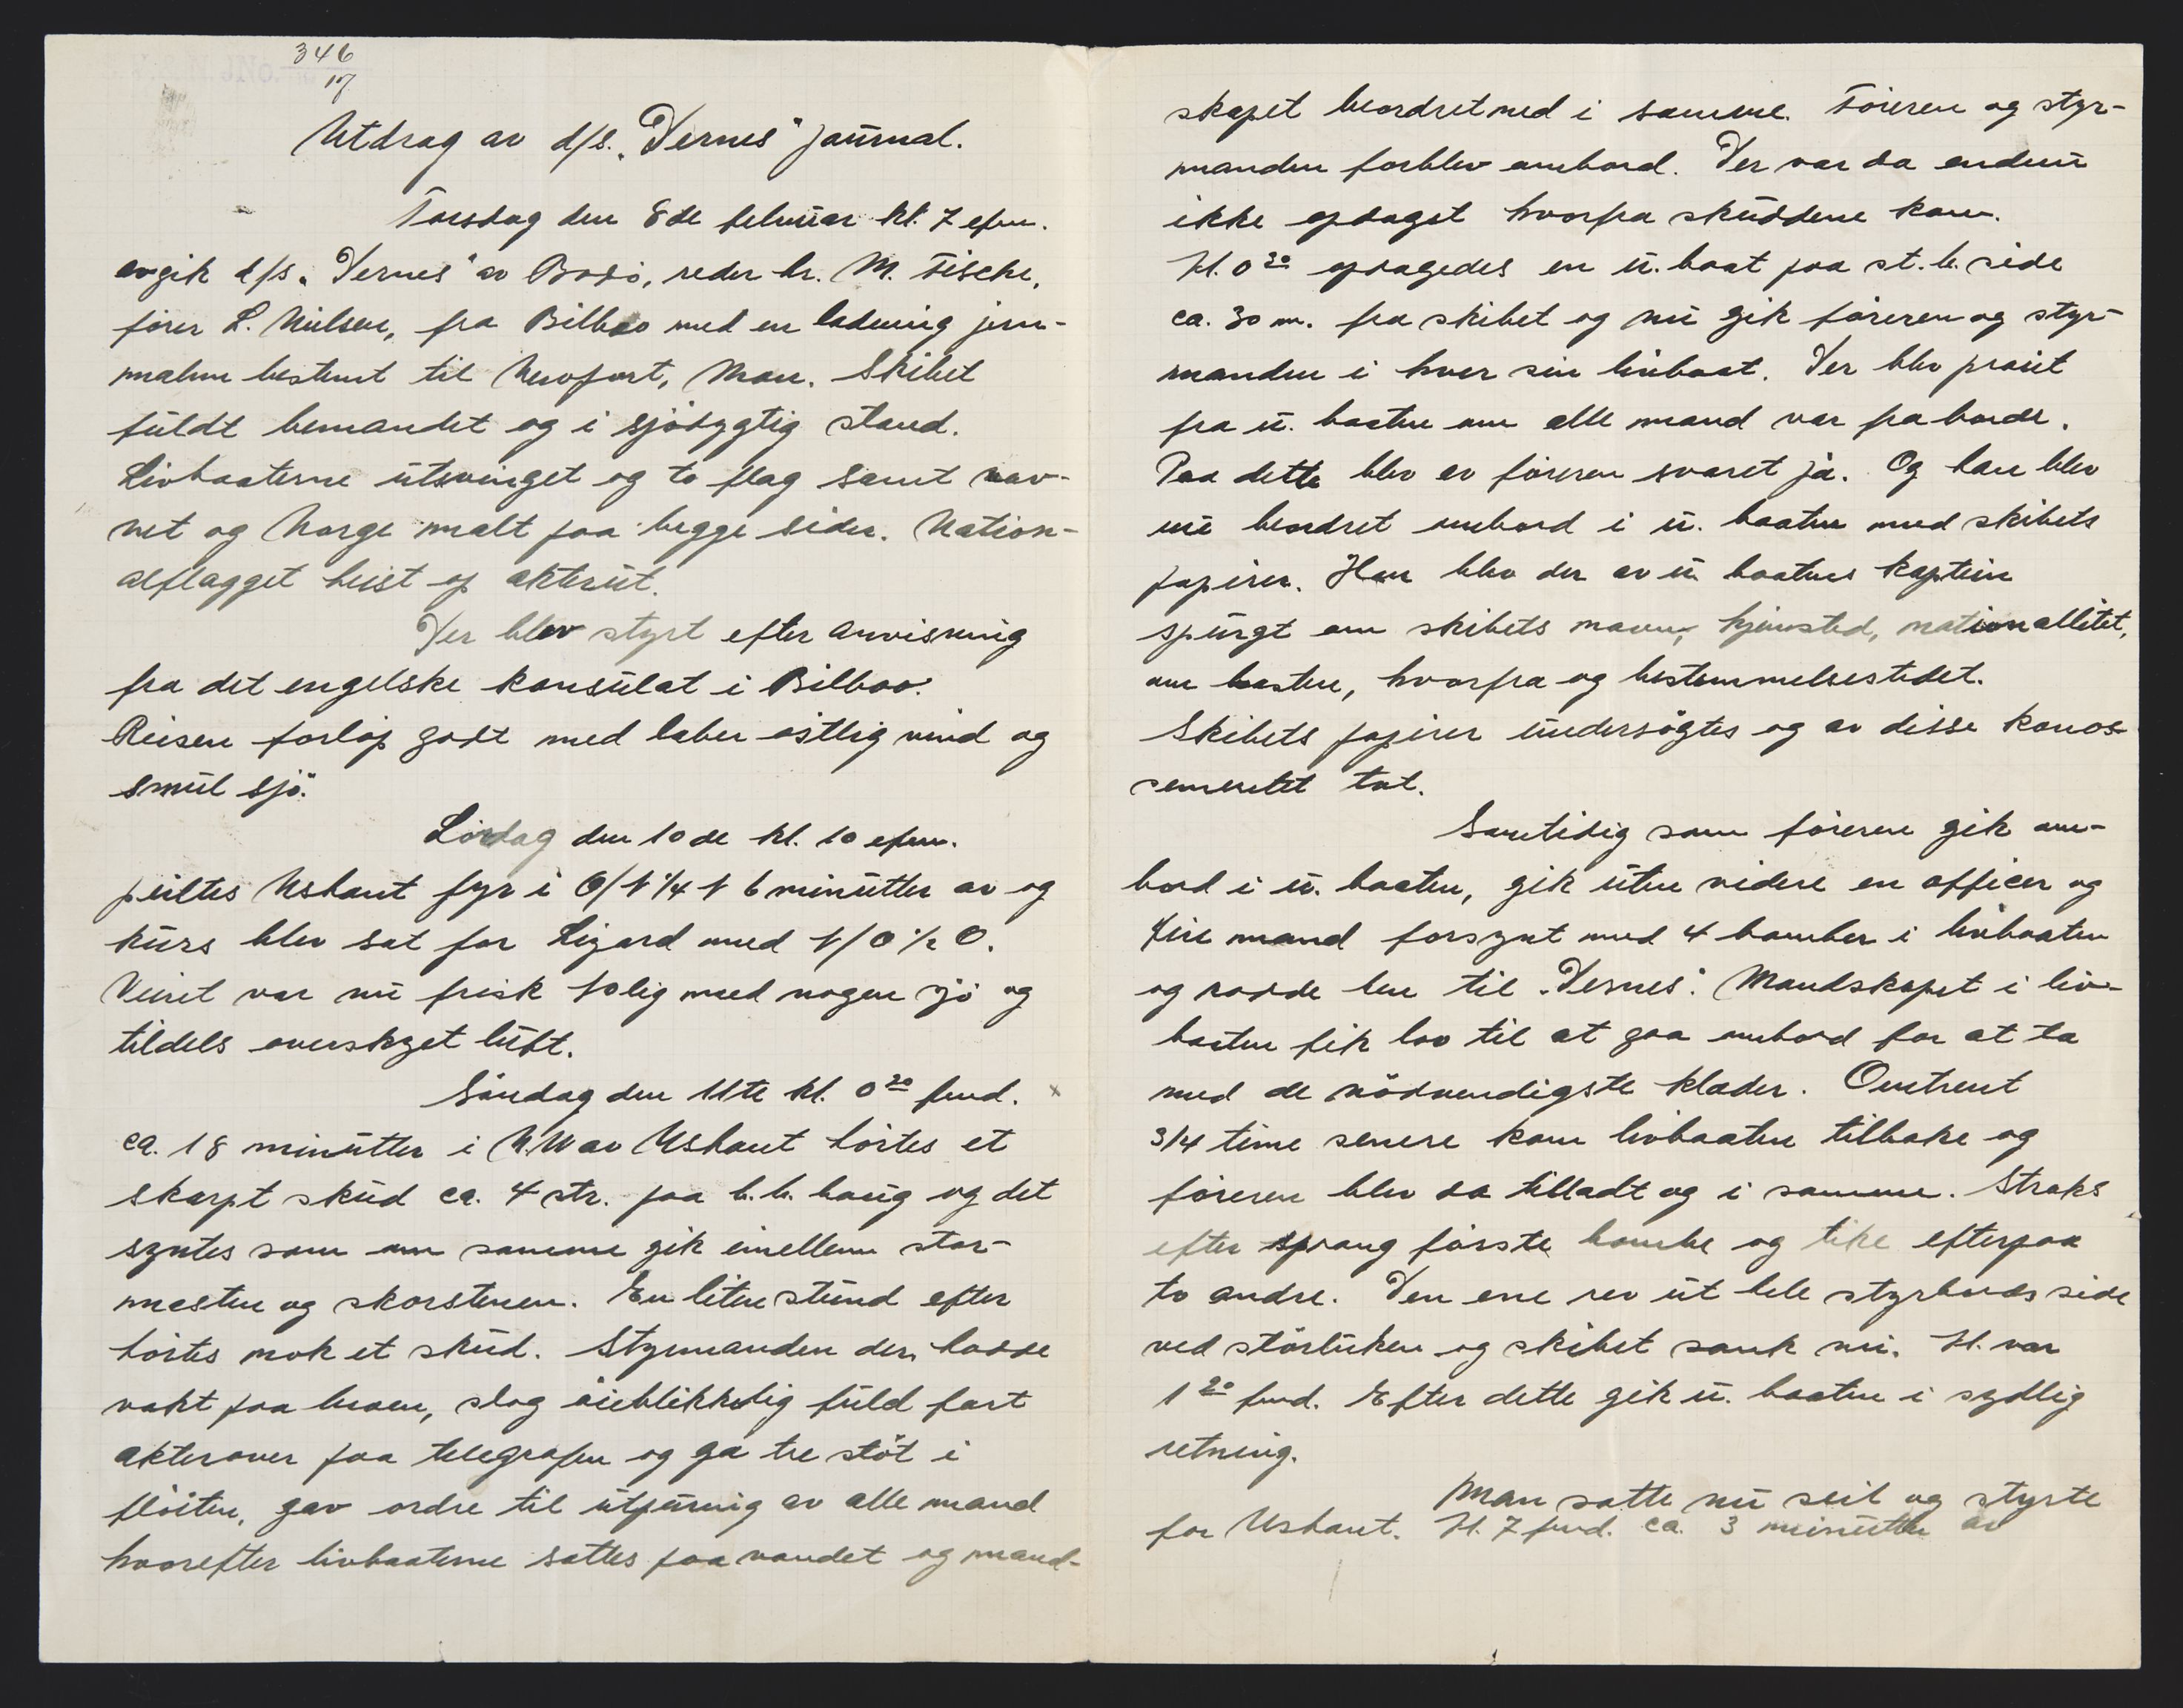 346
17
Utdrag av d/s. "Vernes" journal.
Torsdag den 8de februar kl. 7 efm.
avgik d/s. "Vernes" av Bodö, reder hr. M. Tische,
förer L. Nielsen, fra Bilbao med en ladning jern-
malm bestemt til Newport, Mon. Skibet
fuldt bemandet og i sjödygtig stand.
Livbaaterne utsvinget og to flag samt nav-
net og Norge malt paa begge sider. Nation-
alflagget heist op akterut.
Der blev styrt efter anvisning
fra det engelske konsulat i Bilbao.
Reisen forlöp godt med laber östlig vind og
smul sjö.
Lördag den 10de kl. 10 efm.
peiltes Ushant fyr i O/N 1/4 N 6 minutter av og
kurs blev sat for Lizard med N/O 1/2 O.
Veiret var nu frisk NOlig med nogen sjö og
tildels overskyet luft.
Söndag den 11te kl. 0 20 fmd.
ca. 18 minutter i N.W av Ushant hörtes et
skarpt skud ca. 4 str. paa b.b. baug og det
syntes som om samme gik imellem stor-
masten og skorstenen. En liten stund efter
hörtes nok et skud. Styrmanden der hadde
vakt paa broen, slog öieblikkelig fuld fart
akterover paa telegrafen og ga tre stöt i
flöiten, gav ordre til utpurring av alle mand
hvorefter livbaaterne sattes paa vandet og mand-
skapet beordret ned i samme. Föreren og styr-
manden forblev ombord. Der var da endnu
ikke opdaget hvorfra skuddene kom.
Kl. 0 30 opdagedes en u. baat paa st. b. side
ca. 30 m. fra skibet og nu gik föreren og styr-
manden i hver sin livbaat. Der blev praiet
fra u. baaten om alle mand var fra borde.
Paa dette blev av föreren svaret ja. Og han blev
nu beordret ombord i u. baaten med skibets
papirer. Han blev der av u baatens kaptein
spurgt om skibets navn, hjemsted, nationallitet,
om lasten, hvorfra og bestemmelsestedet.
Skibets papirer undersögtes og av disse konos-
sementet tat.
Samtidig som föreren gik om-
bord i u. baaten, gik uten videre en officer og
fire mand forsynt med 4 bomber i livbaaten
og rodde hen til "Vernes". Mandskapet i liv-
baaten fik lov til at gaa ombord for at ta
med de nödvendigste klæder. Omtrent
3/4 time senere kom livbaaten tilbake og
föreren blev da tilladt og i samme. Straks
efter sprang förste bombe og like efterpaa
to andre. Den ene rev ut hele styrbords side
ved storluken og skibet sank nu. Kl. var
1 20 fmd. Efter dette gik u. baaten i sydlig
retning.
Man satte nu seil og styrte
for Ushant. Kl. 7 fmd. ca. 3 minutter av